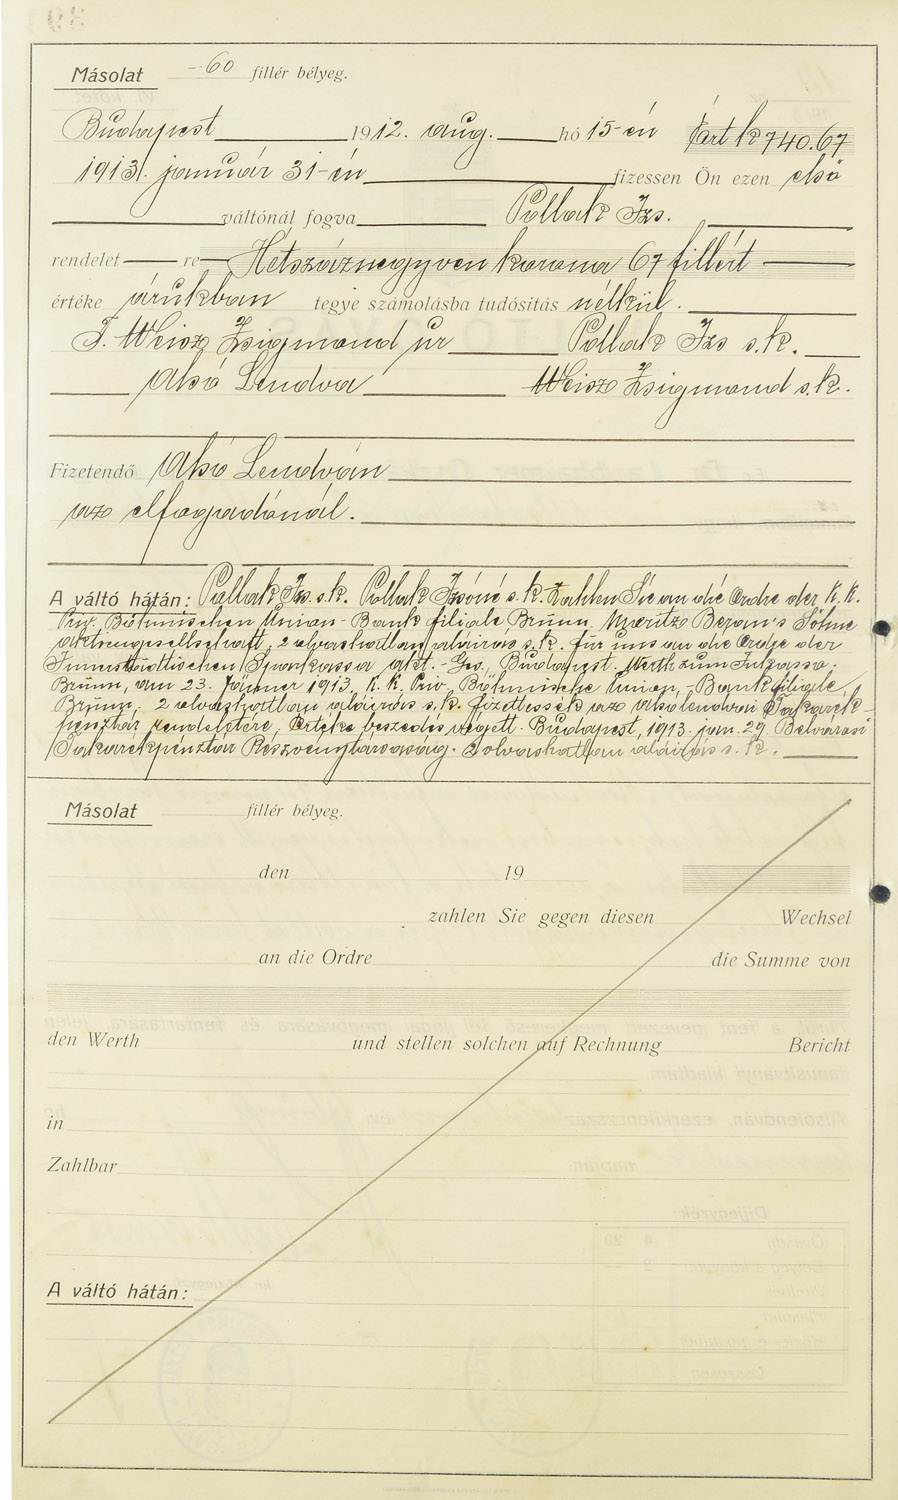 Másolat -60 fillér bélyeg.
Budapest 1912. aug. hó 15-én Párt K 740.67
1913. január 31-én fizessen Ön ezen első
váltónál fogva Pollak Izs.
rendelet re Hétszáznegyven korona 67 fillért
értéke árukban tegye számolásba tudósítás nélkül.
T. Weisz Zsigmond úr Pollak Izs s.k.
Alsó Lendva Weisz Zsigmond s.k.
Fizetendő Alsó Lendván
az elfogadónál.
A váltó hátán: Pollak Izs. s.k. Pollak Izsóné s.k. Zahlen Sie an die Ordre der K. K.
Priv. Böhmischen Union-Bank filiale Brünn. Moritz Beran's Söhne
Aktiengesellschaft, 2 olvashatlan aláirás s.k. für uns an die Ordre der
Innerstädtischen Sparkassa akt.-Ges, Budapest. Werth zum Inkasso.
Brünn, am 23. Jänner 1913. K. K. Priv. Böhmische Union-Bank filiale
Brünn. 2 olvashatlan aláirás s.k. fizettessék az alsólendvai Takarék-
pénztár rendeletére, Értéke beszedés végett. Budapest, 1913. jan. 29. Belvárosi
Takarékpénztár Részvénytársaság. 2 olvashatlan aláirás s.k.
Másolat fillér bélyeg.
den 19
zahlen Sie gegen diesen Wechsel
an die Ordre die Summe von
den Werth und stellen solchen auf Rechnung Bericht
in
Zahlbar
A váltó hátán: